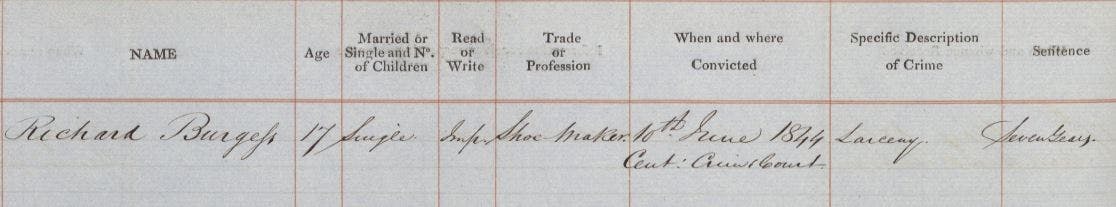 NAME Age Married or Single and No. of Children Read or Write Trade or Profession When and where Convicted Specific Description of Crime Sentence
Richard Burgess 17 Single Imp. Shoe Maker. 10th June 1844 Larceny. Seven Years.
Cent: Crim: Court